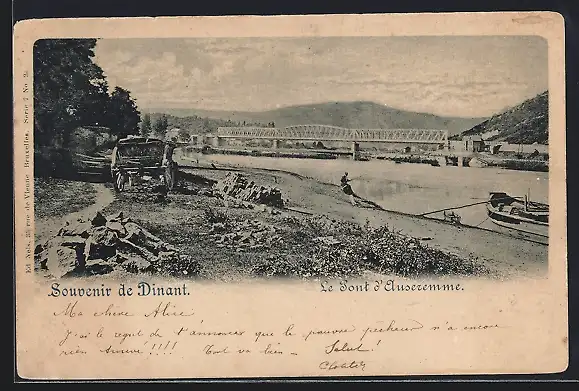 Ed. Nels, 38 rue de Vienne, Bruxelles. Serie 7 No.
Souvenir de Dinant.
Le Pont d'Anseremme.
Ma chère Alice
J'ai le regret de t'annoncer que le pauvre pecheur n'a encore
rien trouvé!!!! Tout va bien — Salut!